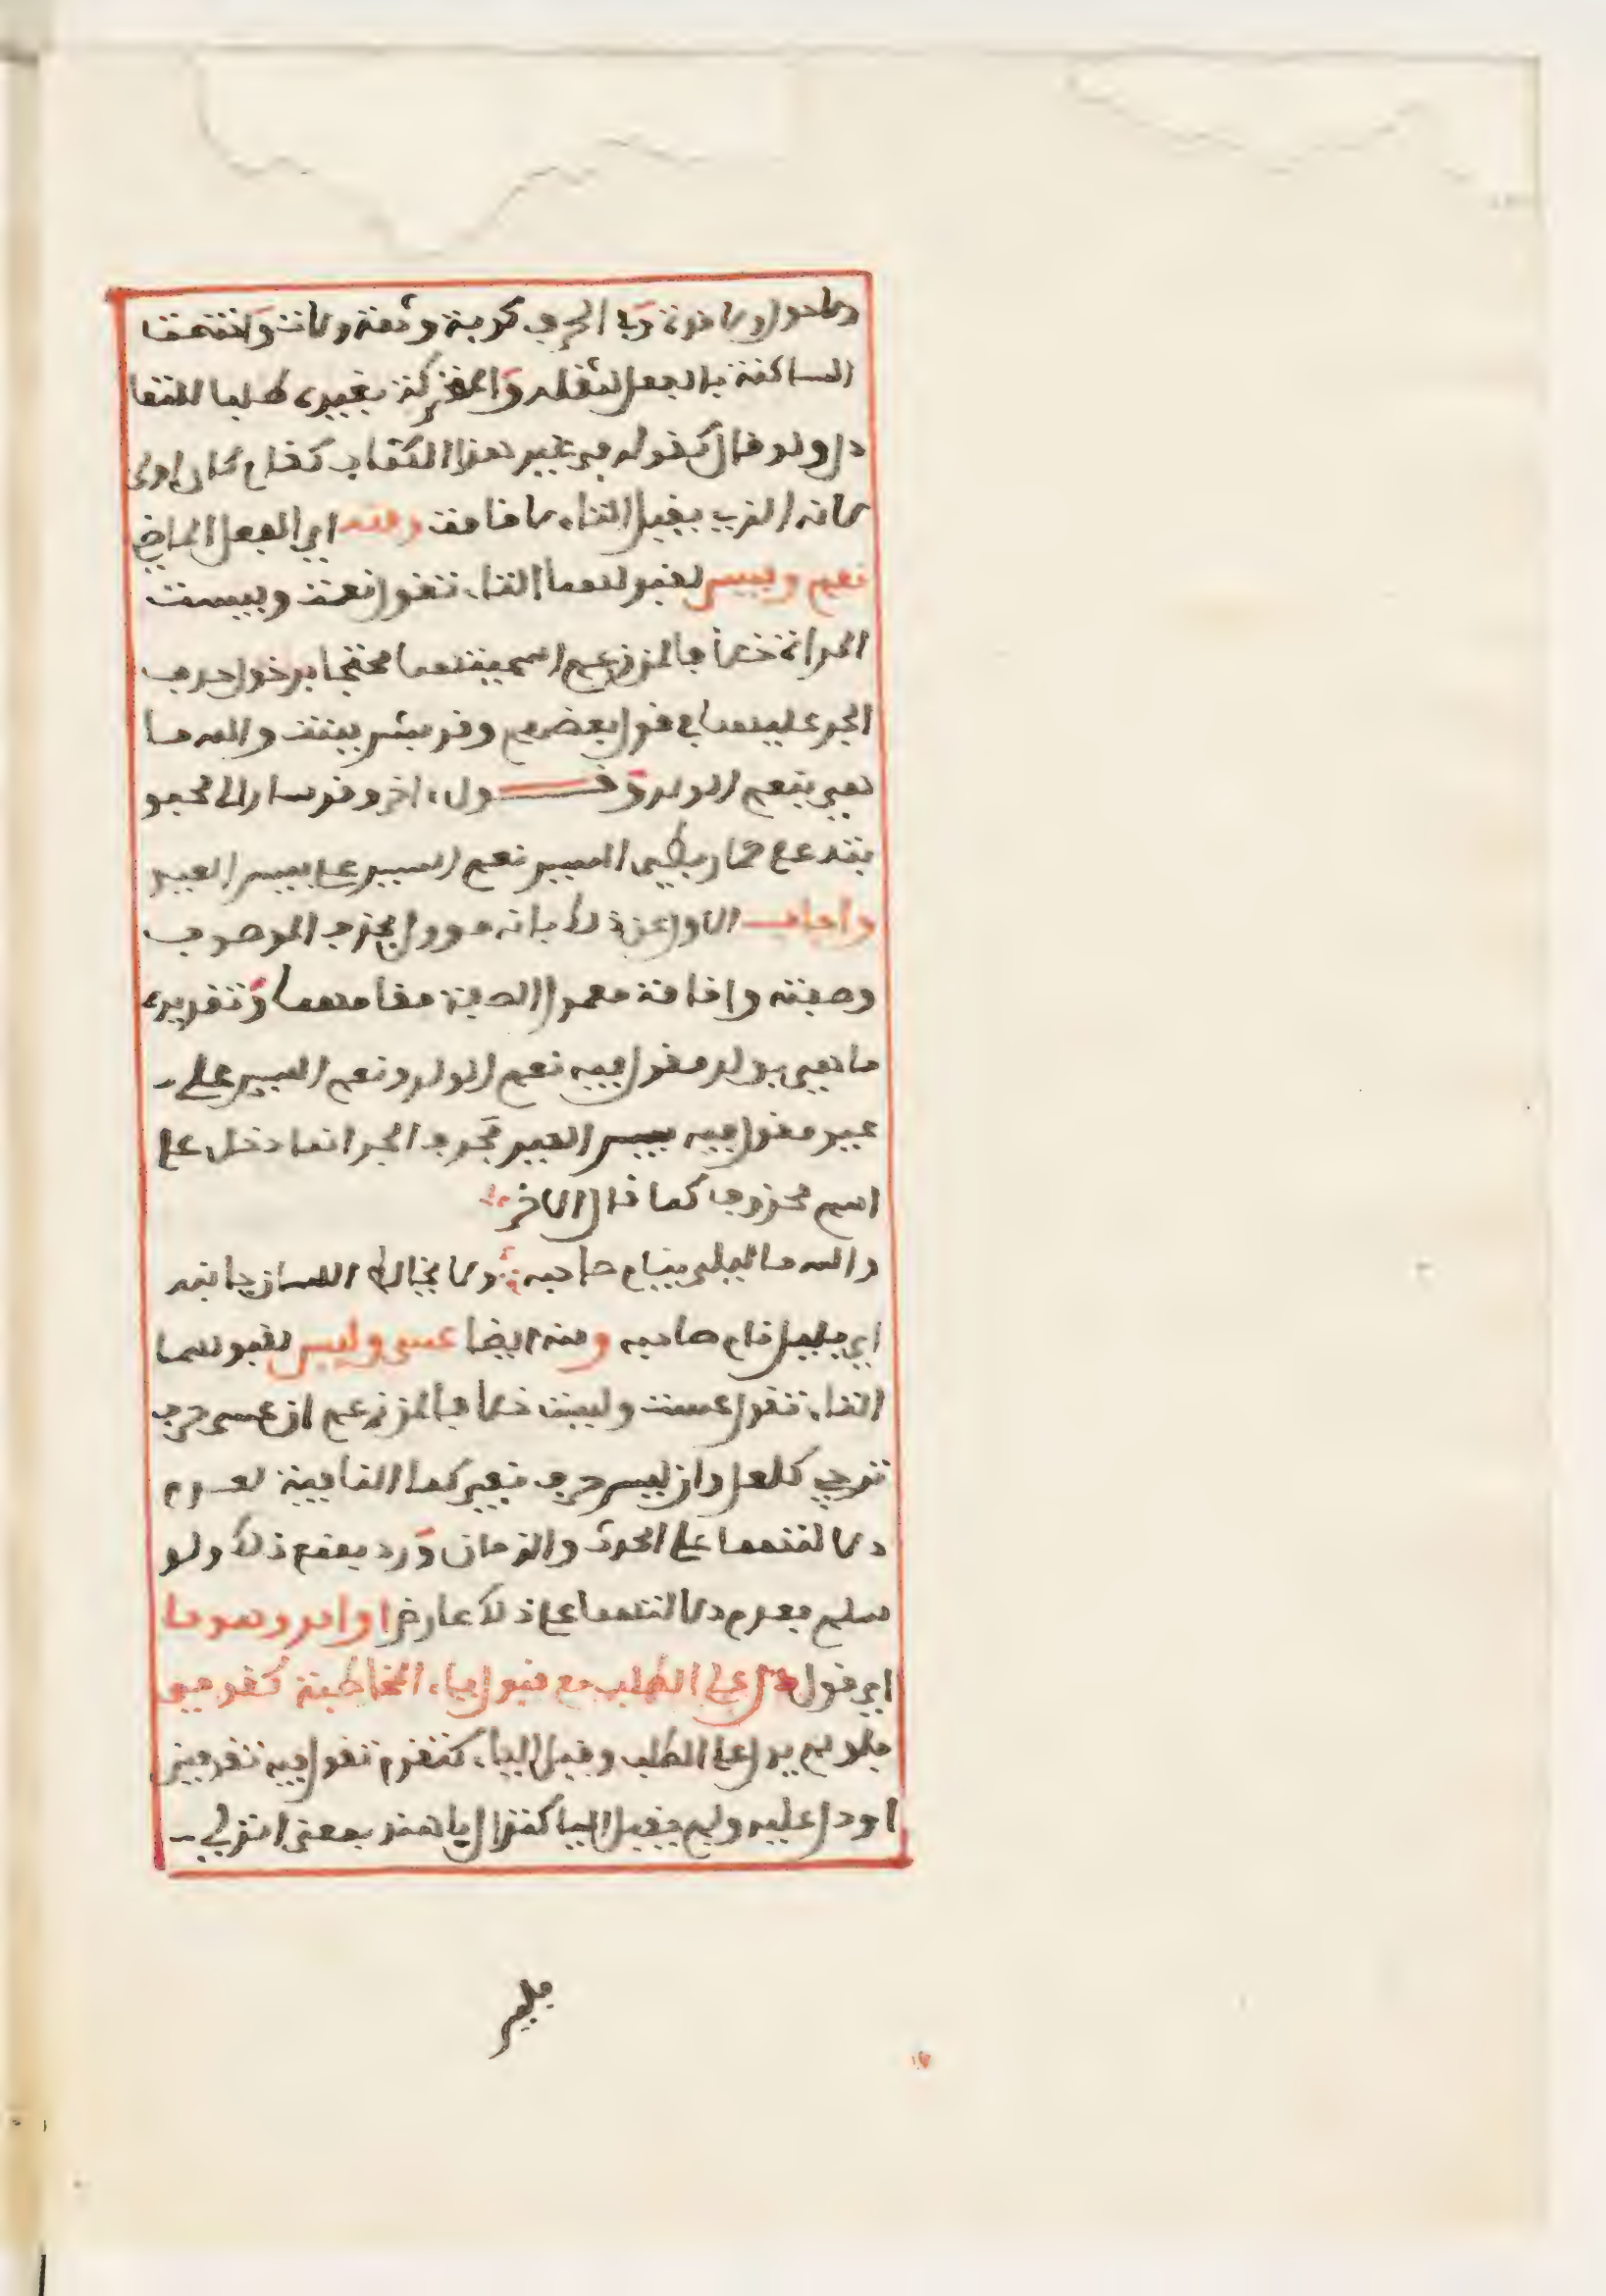 ولا حول ولا قوة وبالحرف كربة وثمة ولات واختصت
الساكنة بالفعل لثقله والمتحركة بغيره طلبا للتعا
دل ولو قال كقوله في غير هذا الكتاب كقام كان اولى
لانه الذي يقبل التاء لا قامت ومنه اي الفعل الماضي
نعم وبيس لقبولهما التاء تقول نعمت وبيست
المراة خلافا لمن زعم اسميتهما محتجا بدخول حرف
الجر عليهما في قول بعضهم وقد بشر ببنت والله ما
هي بنعم الولد وقول اخر وقد سار الى محبو
بته على حمار بطي السير نعم السير على بيس العير
واجاب الاول عن ذلك بانه موول بحذف الموصوف
وصفته واقامة معمول الصفة مقامهما وتقديره
ما هي بولد مقول فيه نعم الولد ونعم السير على
عير مقول فيه بيس العير فحرف الجر انما دخل على
اسم محذوف كما قال الاخر
والله ما ليلي بنام صاحبه ولا مخالط الليان جانبه
اي بليل نام صاحبه ومنه ايضا عسى وليس لقبولهما
التاء تقول عست وليست خلافا لمن زعم ان عسى حرف
ترجي كلعل وان ليس حرف نفي كما النافية لعدم
دلالتهما على الحدث والزمان ورد بمنع ذلك ولو
سلم فعدم دلالتهما على ذلك عارض او امر وهو ما
اي قول دل على الطلب مع قبول ياء المخاطبة كقومي
فلو لم يدل على الطلب وقبل الياء كتقوم تقول فيه تقومين
او دل عليه ولم يقبل اليا كنزال يا هند بمعنى انزلي
فليس